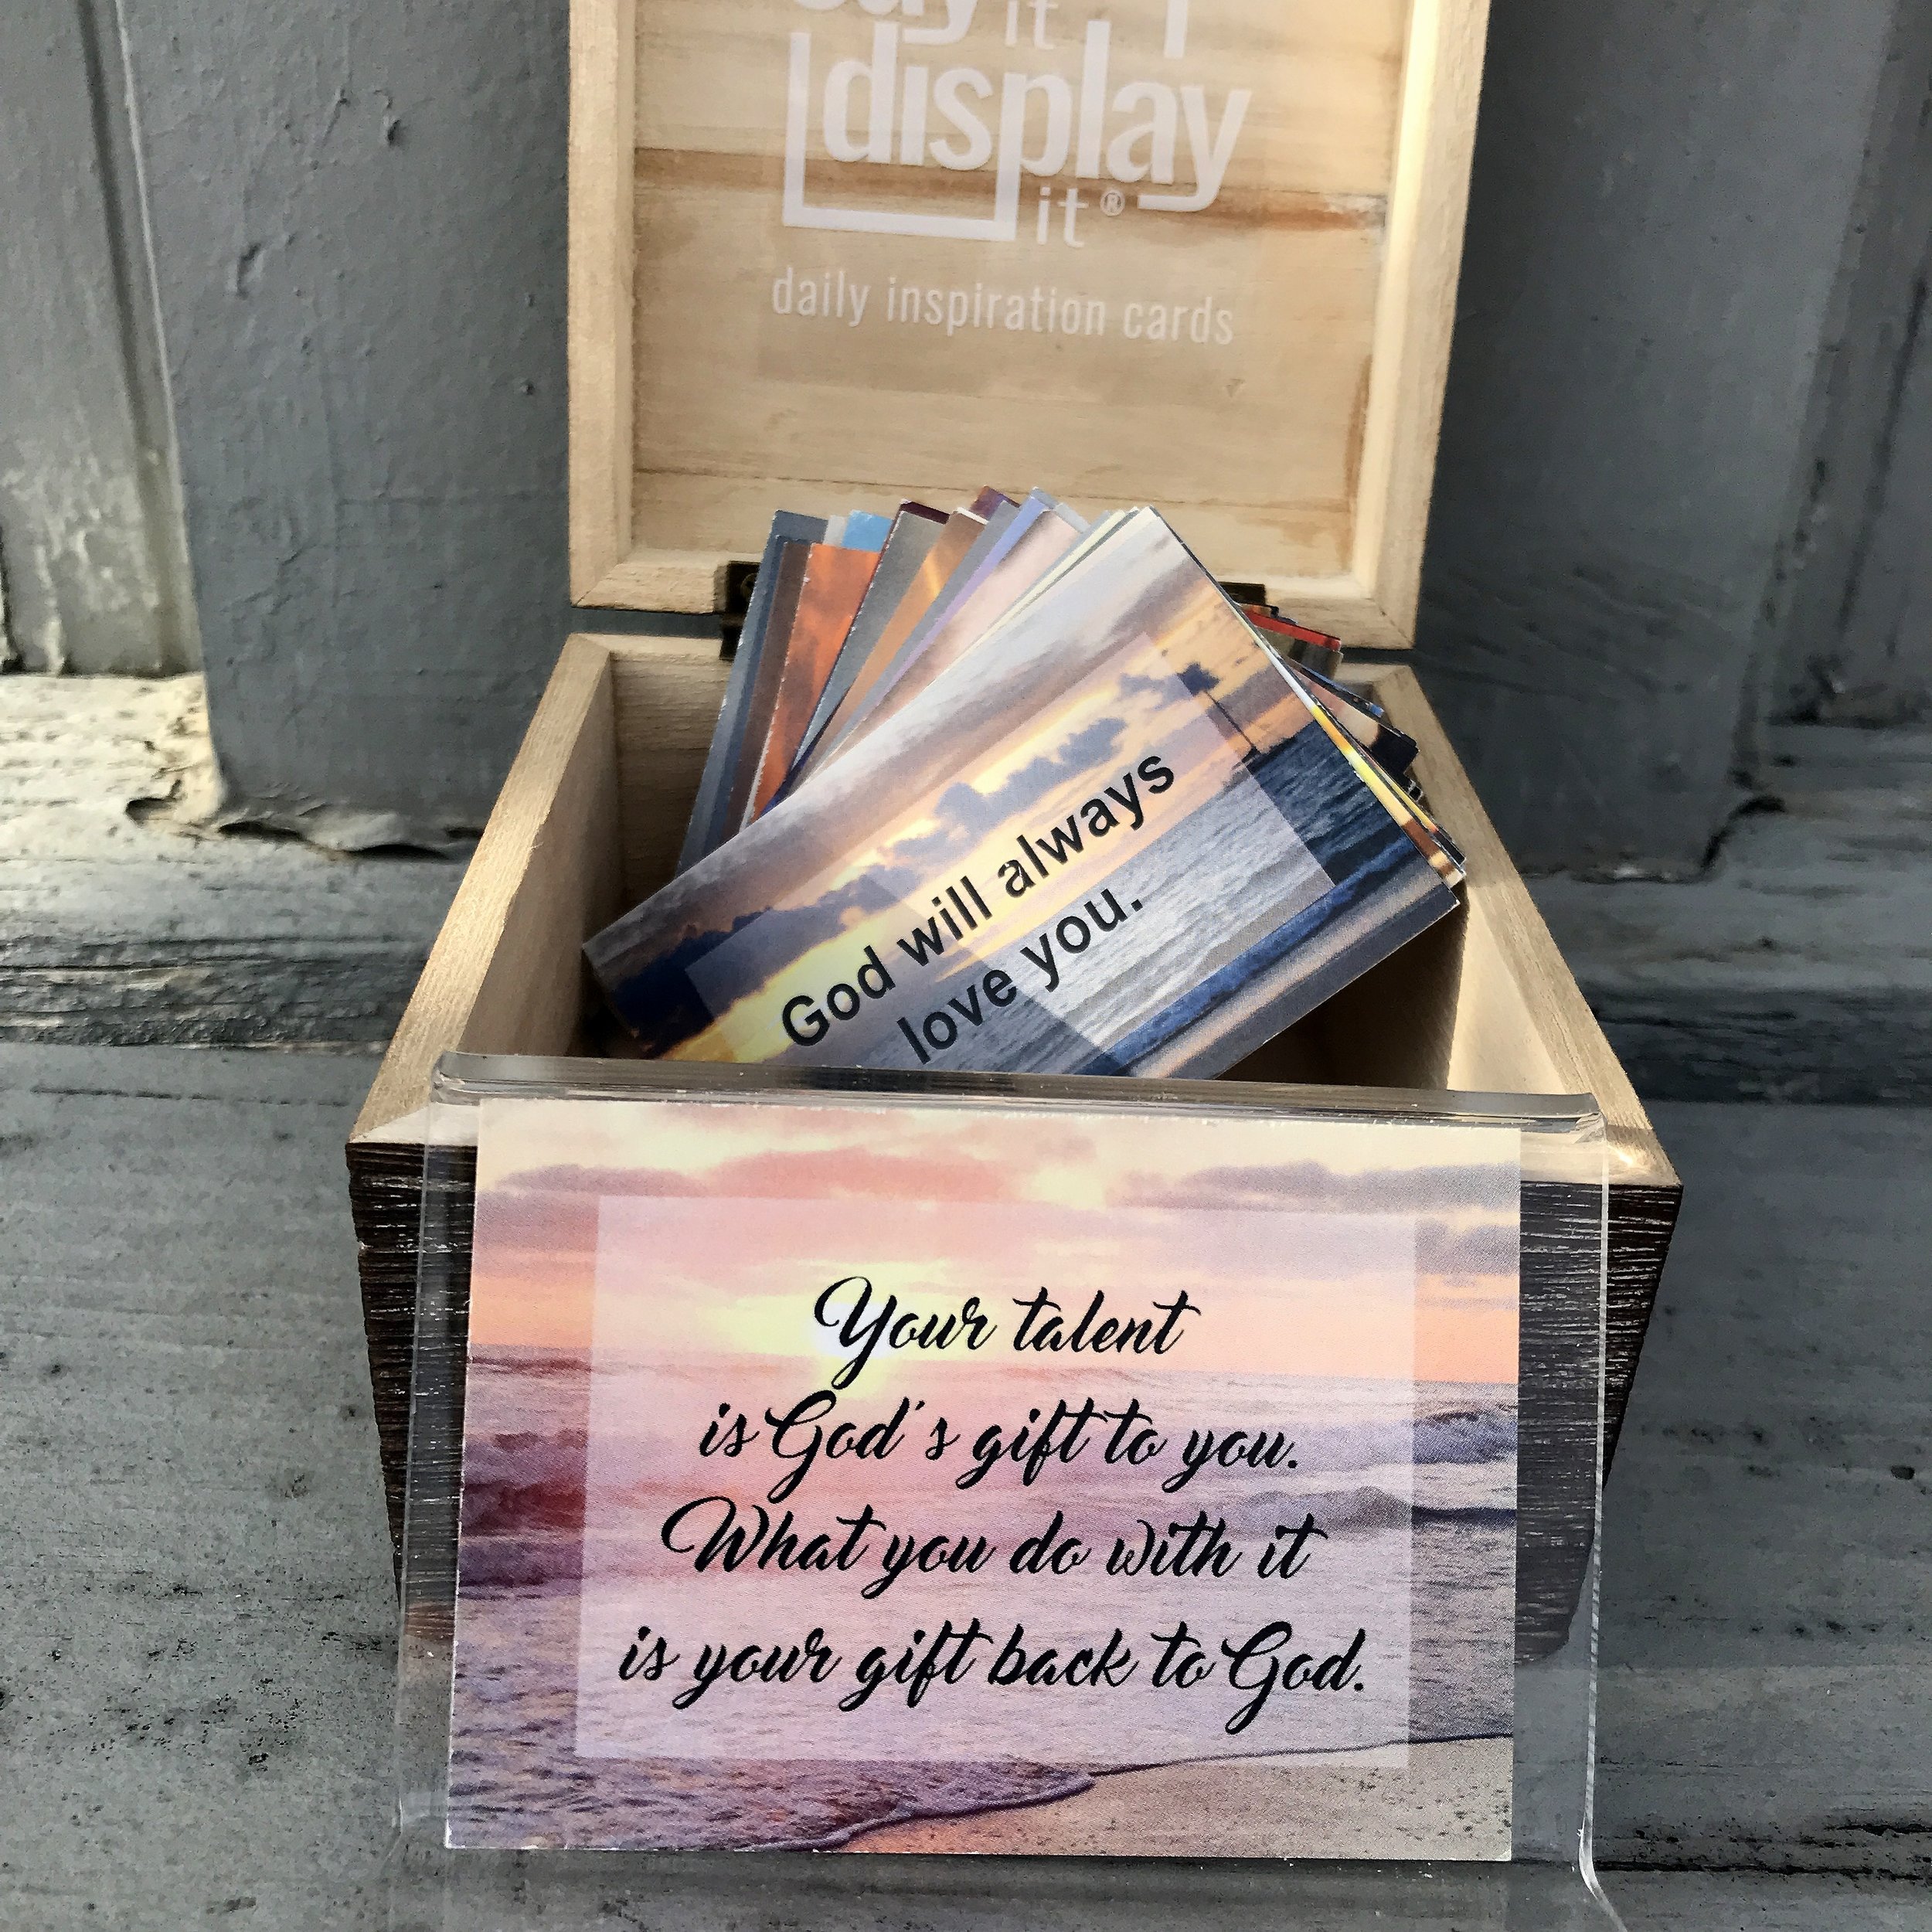 it
display
it®
daily inspiration cards
God will always
love you.
Your talent
is God's gift to you.
What you do with it
is your gift back to God.